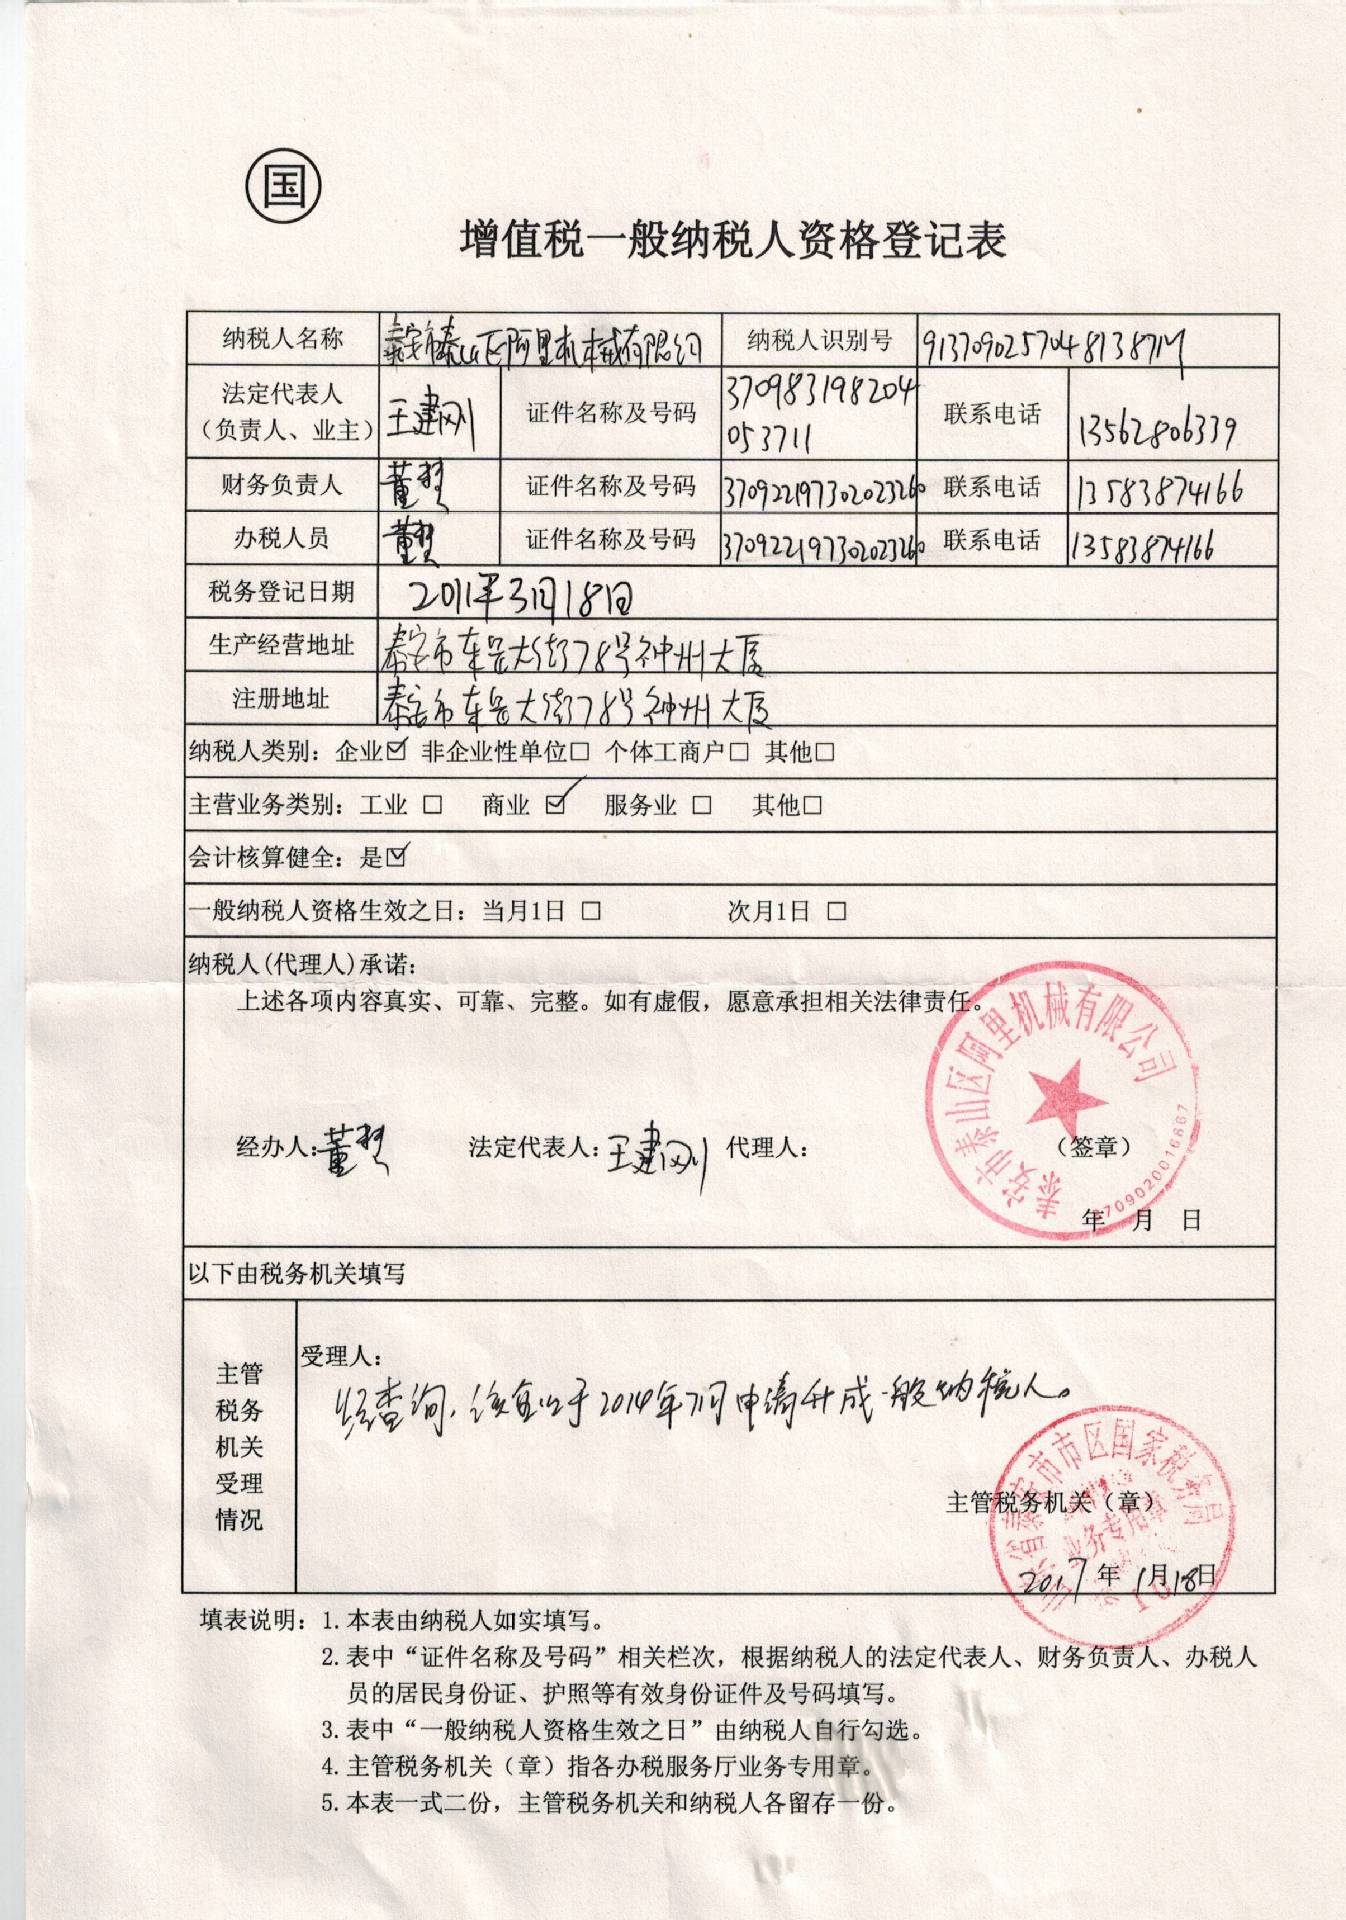 国
增值税一般纳税人资格登记表
纳税人名称 泰安市泰山区阿里机械有限公司 纳税人识别号 91370902570481387M
法定代表人
（负责人、业主） 王建刚 证件名称及号码 370983198204
053711 联系电话 13562806339
财务负责人 董 证件名称及号码 370922197302023260 联系电话 13583874166
办税人员 董 证件名称及号码 370922197302023260 联系电话 13583874166
税务登记日期 2011年3月18日
生产经营地址 泰安市东岳大街78号神州大厦
注册地址 泰安市东岳大街78号神州大厦
纳税人类别：企业☑ 非企业性单位□ 个体工商户□ 其他□
主营业务类别：工业 □ 商业 ☑ 服务业 □ 其他□
会计核算健全：是☑
一般纳税人资格生效之日：当月1日 □ 次月1日 □
纳税人(代理人)承诺：
上述各项内容真实、可靠、完整。如有虚假，愿意承担相关法律责任。
泰安市泰山区阿里机械有限公司
3709020016867
经办人：董 法定代表人：王建刚 代理人： （签章）
年 月 日
以下由税务机关填写
主管
税务
机关
受理
情况
受理人：
经查询，该企业于2014年7月申请升成一般纳税人。
山东省泰安市市区国家税务局
业务专用章
主管税务机关（章）
2017年1月18日
填表说明：1.本表由纳税人如实填写。
2.表中“证件名称及号码”相关栏次，根据纳税人的法定代表人、财务负责人、办税人
员的居民身份证、护照等有效身份证件及号码填写。
3.表中“一般纳税人资格生效之日”由纳税人自行勾选。
4.主管税务机关（章）指各办税服务厅业务专用章。
5.本表一式二份，主管税务机关和纳税人各留存一份。